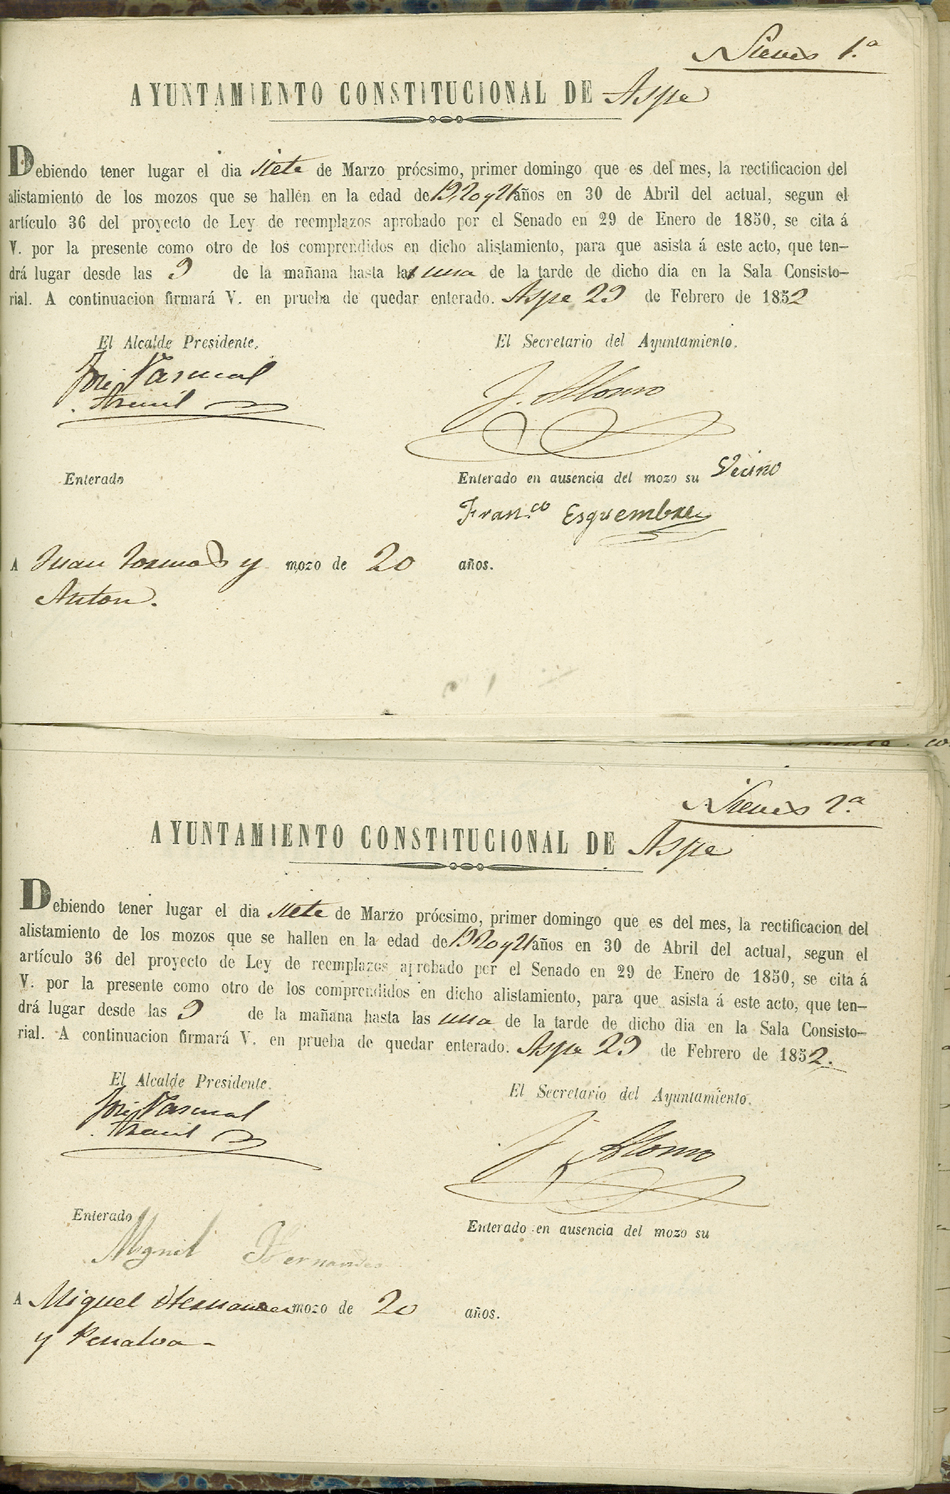 Nieves 1.ª
AYUNTAMIENTO CONSTITUCIONAL DE Aspe
Debiendo tener lugar el dia siete de Marzo prócsimo, primer domingo que es del mes, la rectificacion del
alistamiento de los mozos que se hallen en la edad de 19 20 y 21 años en 30 de Abril del actual, segun el
artículo 36 del proyecto de Ley de reemplazos aprobado por el Senado en 29 de Enero de 1850, se cita á
V. por la presente como otro de los comprendidos en dicho alistamiento, para que asista á este acto, que ten-
drá lugar desde las 9 de la mañana hasta la una de la tarde de dicho dia en la Sala Consisto-
rial. A continuacion firmará V. en prueba de quedar enterado. Aspe 29 de Febrero de 1852
El Alcalde Presidente,
El Secretario del Ayuntamiento.
José Pascual
J. Alonso
Enterado
Enterado en ausencia del mozo su Vecino
Fran.co Esquembre
A Juan y mozo de 20 años.
Anton.
Nieves 2.ª
AYUNTAMIENTO CONSTITUCIONAL DE Aspe
Debiendo tener lugar el dia siete de Marzo prócsimo, primer domingo que es del mes, la rectificacion del
alistamiento de los mozos que se hallen en la edad de 19 20 y 21 años en 30 de Abril del actual, segun el
artículo 36 del proyecto de Ley de reemplazos aprobado por el Senado en 29 de Enero de 1850, se cita á
V. por la presente como otro de los comprendidos en dicho alistamiento, para que asista á este acto, que ten-
drá lugar desde las 9 de la mañana hasta las una de la tarde de dicho dia en la Sala Consisto-
rial. A continuacion firmará V. en prueba de quedar enterado. Aspe 29 de Febrero de 1852.
El Alcalde Presidente.
El Secretario del Ayuntamiento.
José Pascual
J. Alonso
Enterado
Enterado en ausencia del mozo su
Miguil Hernandes
A Miguel Hernandez mozo de 20 años.
y Penalva